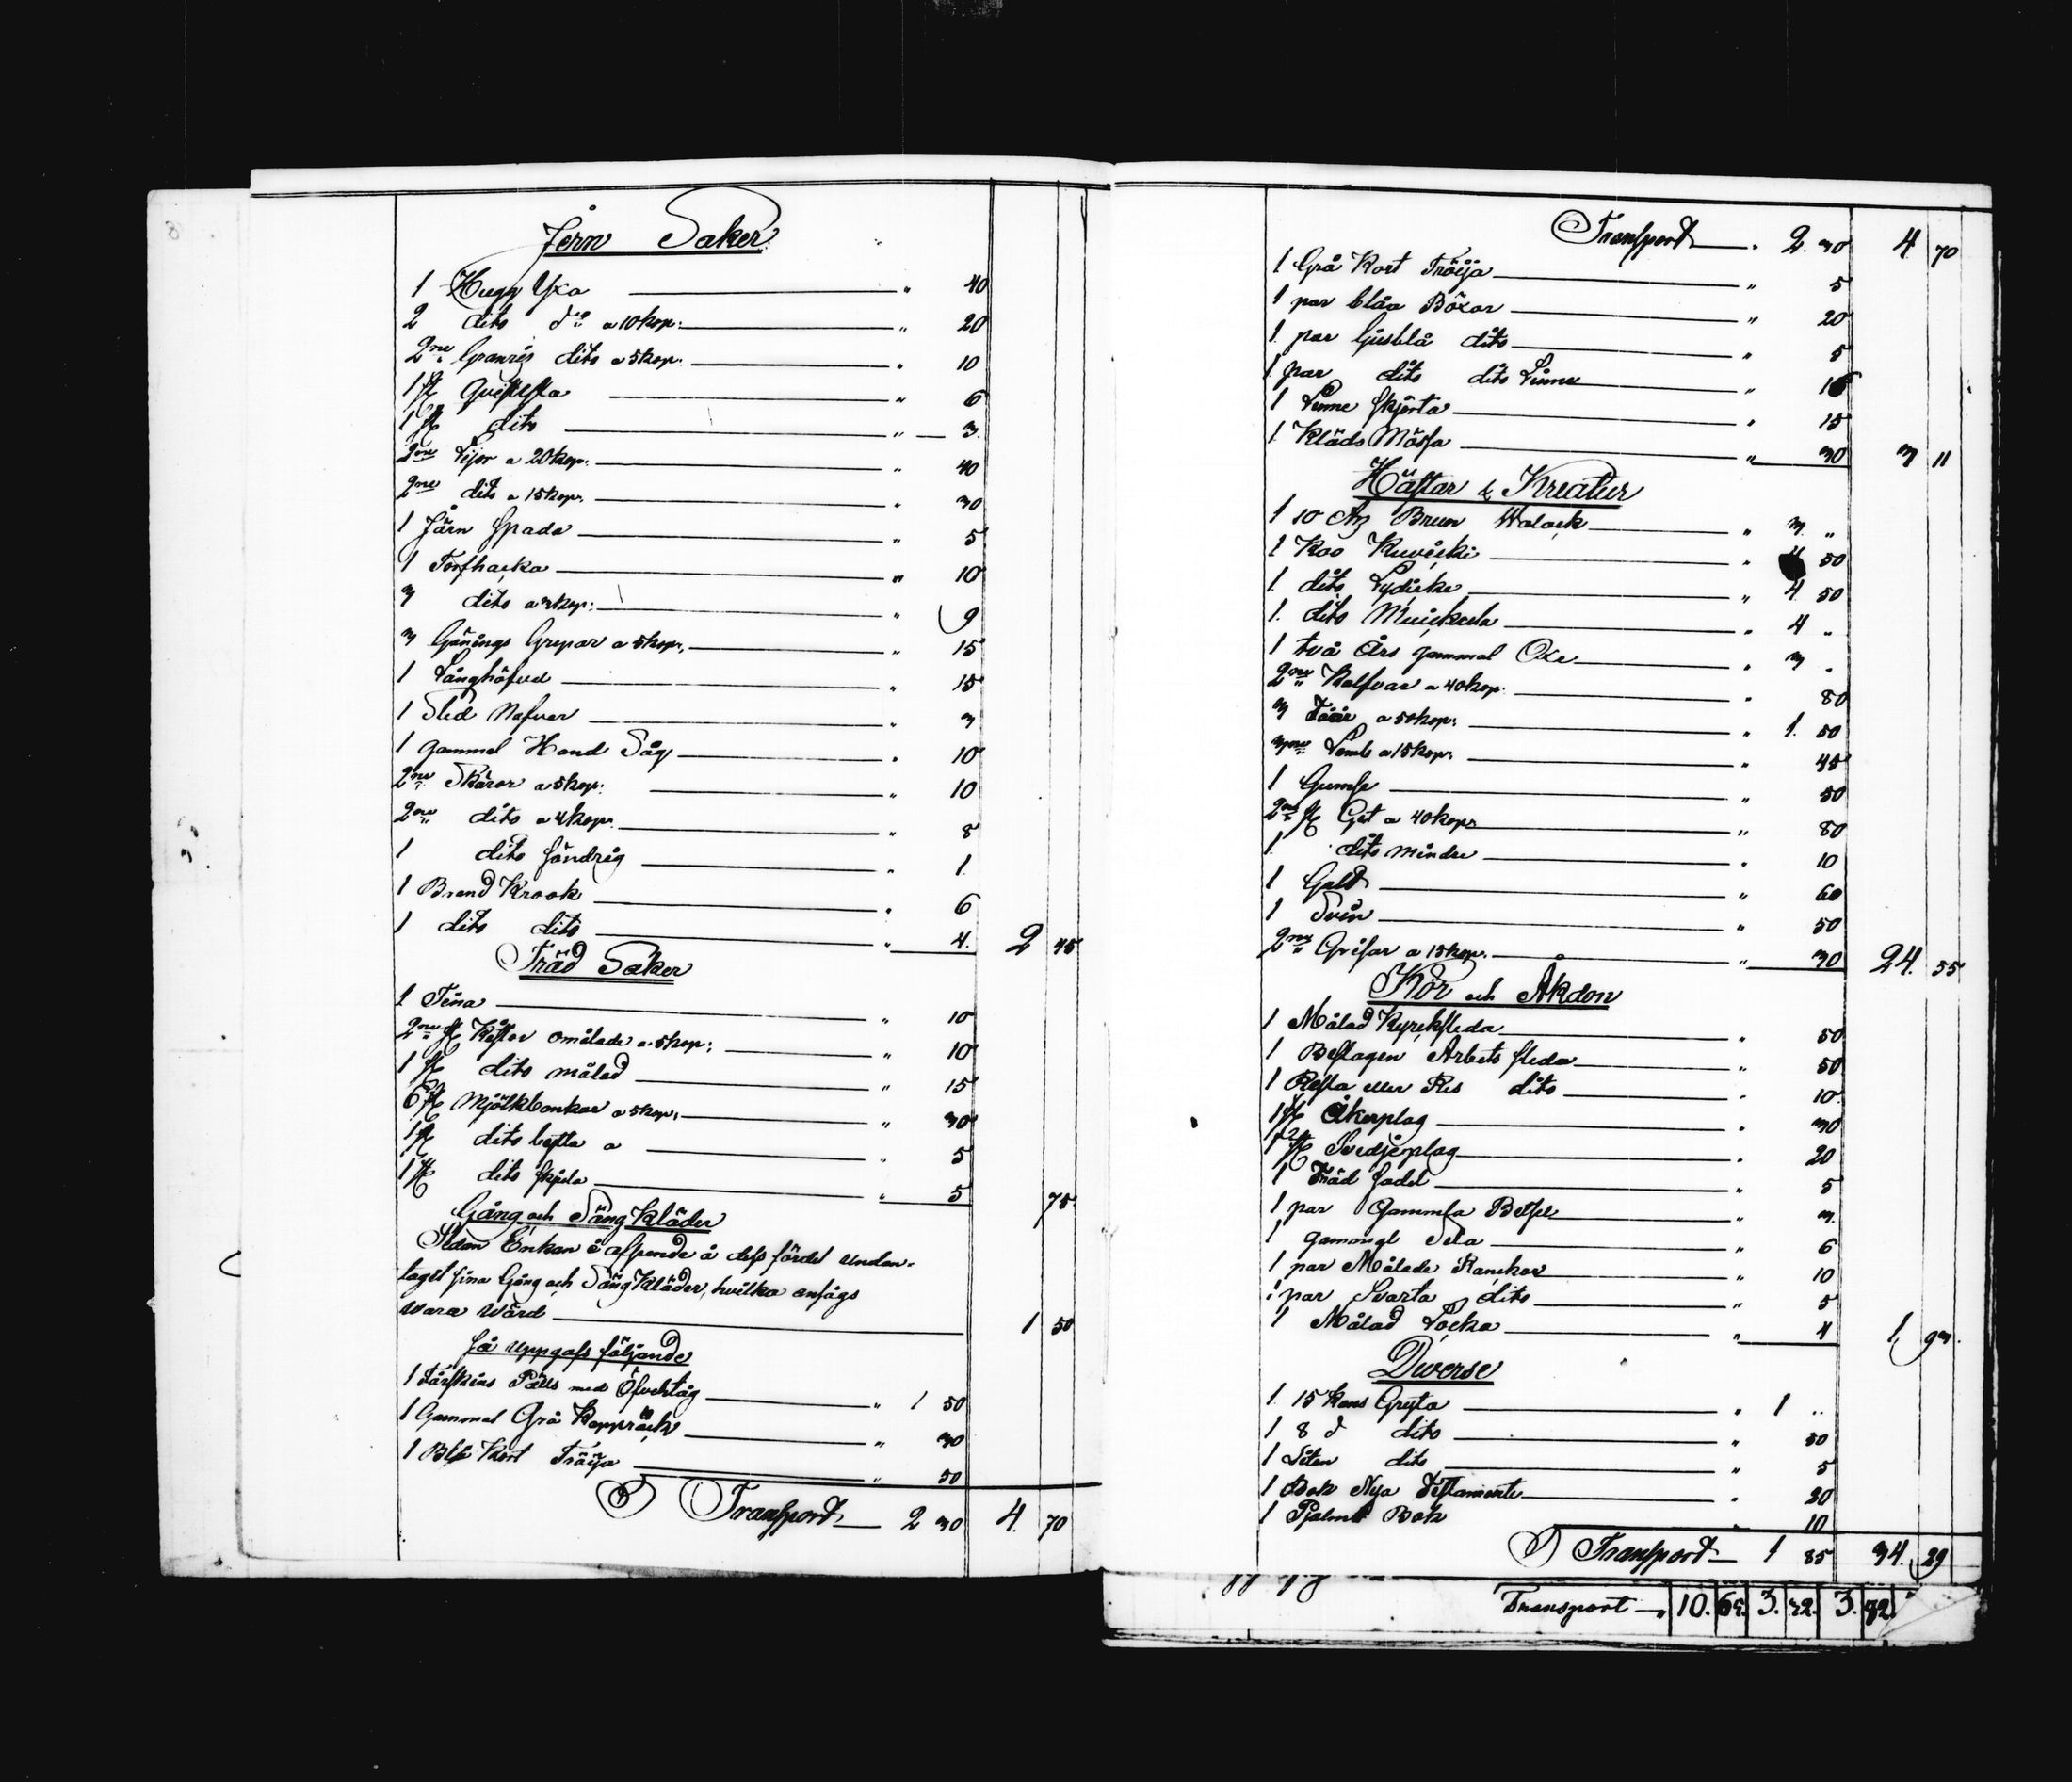 Jern Saker
1 Hugg Yxa " 40
2 dito do a 10 kop: " 20
2ne Granris dito a 5 kop. " 10
1 st " 6
1 st dito " 3.
2ne Lijor a 20 kop. " 40
2ne dito a 15 kop. " 30
1 Järn Spada " 5
1 Torfhacka " 10
3 dito a 3 kop: " 9
3 Gönings Grepar a 5 kop. " 15
1 Långhöfvel " 15
1 Sled Nafvar " 3
1 gammal Hand Såg " 10
2ne Skäror a 5 kop: " 10
2ne dito a 4 kop. " 8
1 dito söndrig " 1
1 Brand Krook " 6
1 dito dito " 4. 2 45
Träd Saker
1 Tina " 10
2ne st Kistor omålade a 5 kop: " 10
1 st dito målad " 15
6 st Mjölkbonkar a 5 kop. " 30
1 st dito a " 5
1 st dito " 5 75
Gång och Säng Kläder
Sedan Enkan i afseende å dess fördel undan-
tagit sina Gång och Säng Kläder, hvilka ansågs
Vara Värd 1 50
så uppgafs följande
1 Fårskins Päls med Öfvertåg " 1 50
1 Gammal Grå Kapprack " 30
1 Blå Kort Tröija " 50
Transport 2 30 4. 70
Transport " 2. 30 4 70
1 Grå Kort Tröija " 5
1 par blåa Böxor " 20
1 par ljusblå dito " 5
1 par dito dito Linne " 16
1 Linne skjorta " 15
1 Kläds Mössa " 30 3 11
Hästar & Kreatur
1 10 Brun Walack " 3. "
1 Koo " 4 50
1 dito " 4 50
1. dito " 4 "
1 två Års gammal Oxe " 3 "
2ne Kalfvar a 40 kop. " 80
3 Får a 50 kop: " 1. 50
3ne Lamb a 15 kop. " 45
1 Gumse " 50
2ne st Get a 40 kop. " 80
1 dito mindre " 10
1 Galt " 60
1 Svin " 50
2ne Grisar a 15 kop. " 30 24. 55
Kör och Åkdon
1 Målad Kyrksleda " 50
1 Beslagen Arbets sleda " 50
1 eller Ris dito " 10
1 st Åkerplog " 30
1 st Svedjeplog " 20
1 Träd Sadel " 5
1 par Gammla Betsel " 3.
1 gammal Sela " 6
1 par Målade Ranckor " 10
1 par Svarta dito " 5
1 Målad Locka " 4 1, 93.
Diverse
1 15 Kans Gryta " 1 "
1 8 d dito " 50
1 Liten dito " 5
1 Bok Nya Testamente " 20
1 Psalm Bok " 10
Transport 1 85 34. 29
Transport 10. 65. 3. 42. 3. 82.